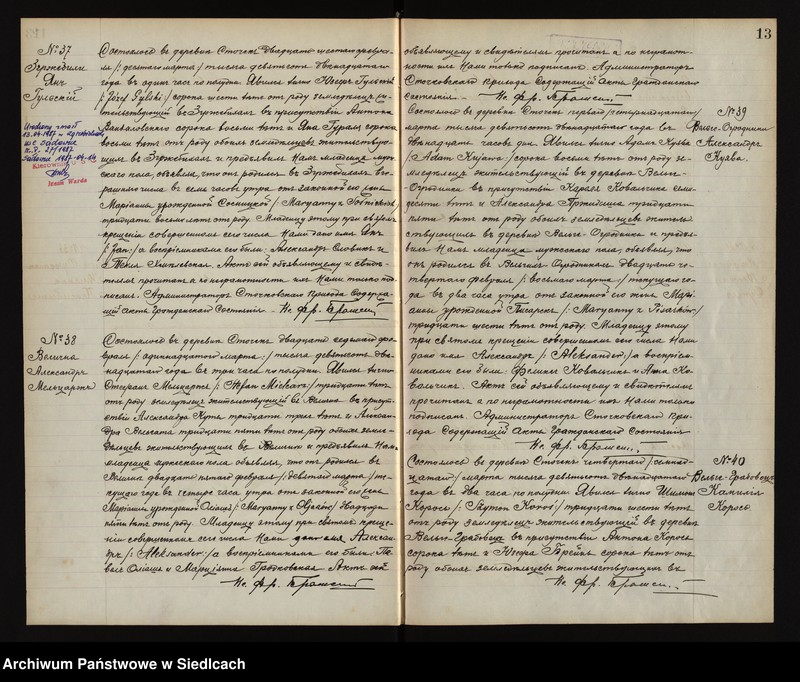 № 37
Зержебили
Янъ
Гульскій
Состоялось въ деревни Сточекъ двадцать шестаго февра-
ля /: десятаго марта :/ тысяча девятьсотъ двенадцатаго
года въ одинъ часъ по полудни. Явился лично Юсефъ Гульскій
/: Józef Gulski :/ сорока шести лѣтъ отъ роду земледѣлецъ жи-
тельствующій въ Зержебиляхъ въ присутствіи Антона
сорока восьми лѣтъ и Яна сорока
восьми лѣтъ отъ роду обоихъ земледѣльцевъ жительствую-
щихъ въ Зержебиляхъ и предъявилъ Намъ младенца муж-
скаго пола, объявляя, что онъ родился въ Зержебиляхъ
числа въ семь часовъ утра отъ законной его жены
Маріанны урожденной Сосницкой /: Maryanny z Sośnickich :/
тридцати восьми лѣтъ отъ роду. Младенцу этому при святомъ
крещеніи совершенномъ сего числа Нами дано имя Янъ
/: Jan :/ а воспріемниками его были: Александръ Словикъ и
Текля Хмѣлевская. Актъ сей объявляющему и свидѣ-
телямъ прочитанъ а по неграмотности ихъ Нами только под-
писанъ. Администраторъ Сточковскаго Прихода Содержа-
щій Акты Гражданскаго Состоянія - Кс. Фр.
№ 38
Велична
Александръ
Мельцаржъ
Состоялось въ деревни Сточекъ двадцать седьмаго фев-
раля /: одиннадцатаго марта :/ тысяча девятьсотъ две-
надцатаго года въ три часа по полудни. Явился лично
Стефанъ Мельцаржъ /: Stefan :/ тридцати лѣтъ
отъ роду земледѣлецъ жительствующій въ Величнѣ въ присут-
ствіи Александра Кута тридцати трехъ лѣтъ и Алексан-
дра тридцати пяти лѣтъ отъ роду обоихъ земле-
дѣльцевъ жительствующихъ въ Величнѣ и предъявилъ Намъ
младенца мужескаго пола объявляя, что онъ родился въ
Величнѣ двадцать пятаго февраля /: девятаго марта :/ те-
кущаго года въ четыре часа утра отъ законной его жены
Маріанны урожденной /: Maryanny z :/ двадцати
пяти лѣтъ отъ роду. Младенцу этому при святомъ креще-
ніи совершенномъ сего числа Нами дано имя Алексан-
дръ /: Aleksander :/ а воспріемниками его были: Па-
велъ и Марціянна Гродковская Актъ сей
Кс. Фр.
13
объявляющему и свидѣтелямъ прочитанъ а по неграмот-
ности ихъ Нами только подписанъ Администраторъ
Сточковскаго Прихода Содержащій Акты Гражданскаго
Состоянія - Кс. Фр.
№ 39
Вельге-Огродники
Александръ
Куява.
Состоялось въ деревни Сточекъ перваго /: четырнадцатаго :/
марта тысяча девятьсотъ двенадцатаго года въ
двенадцать часовъ дня. Явился лично Адамъ Куява
/: Adam Kujawa :/ сорока восьми лѣтъ отъ роду зе-
мледѣлецъ жительствующій въ деревни Вельге-
Огродники въ присутствіи Кароля Ковальчика семи-
десяти лѣтъ и Александра тридцати
пяти лѣтъ отъ роду обоихъ земледѣльцевъ житель-
ствующихъ въ деревни Вельге-Огродники и предъя-
вилъ Намъ младенца мужескаго пола, объявляя, что
онъ родился въ Вельгихъ Огродникахъ двадцать че-
твертаго февраля /: восьмаго марта :/ текущаго го-
да въ два часа утра отъ законной его жены Марі-
анны урожденной Писарекъ /: Maryanny z Pisarków :/
тридцать шести лѣтъ отъ роду. Младенцу этому
при святомъ крещеніи совершенномъ сего числа Нами
дано имя Александръ /: Aleksander :/ а воспріем-
никами его были: Феликсъ Ковальчикъ и Анна Ко-
вальчикъ. Актъ сей объявляющему и свидѣтелямъ
прочитанъ а по неграмотности ихъ Нами только
подписанъ. Администраторъ Сточковскаго При-
хода Содержащій Акты Гражданскаго Состоянія
Кс. Фр.
№ 40
Вельге-Грабовецъ
Капилія
Коросъ.
Состоялось въ деревни Сточекъ четвертаго /: семнад-
цатаго :/ марта тысяча девятьсотъ двенадцатаго
года въ два часа по полудни. Явился лично Шимонъ
Коросъ /: Szymon Koroś :/ тридцати шести лѣтъ
отъ роду земледѣлецъ жительствующій въ деревни
Вельге-Грабовецъ въ присутствіи Антона Короса
сорока лѣтъ и Юсефа сорока лѣтъ отъ
роду обоихъ земледѣльцевъ жительствующихъ въ
Кс. Фр.
Archiwum Państwowe w Siedlcach